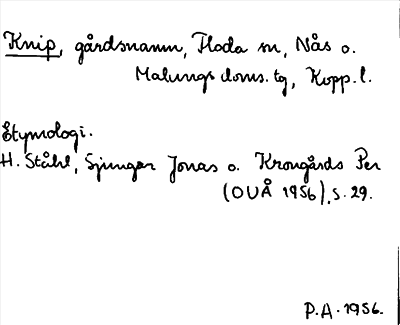 Knip, gårdsnamn, Floda sn, Nås o.
Malungs doms. tg, Kopp. l.
Etymologi.
H. Ståhl, Sjungar Jonas o. Krongårds Per
(OUÅ 1956), s. 29.
P.A. 1956.